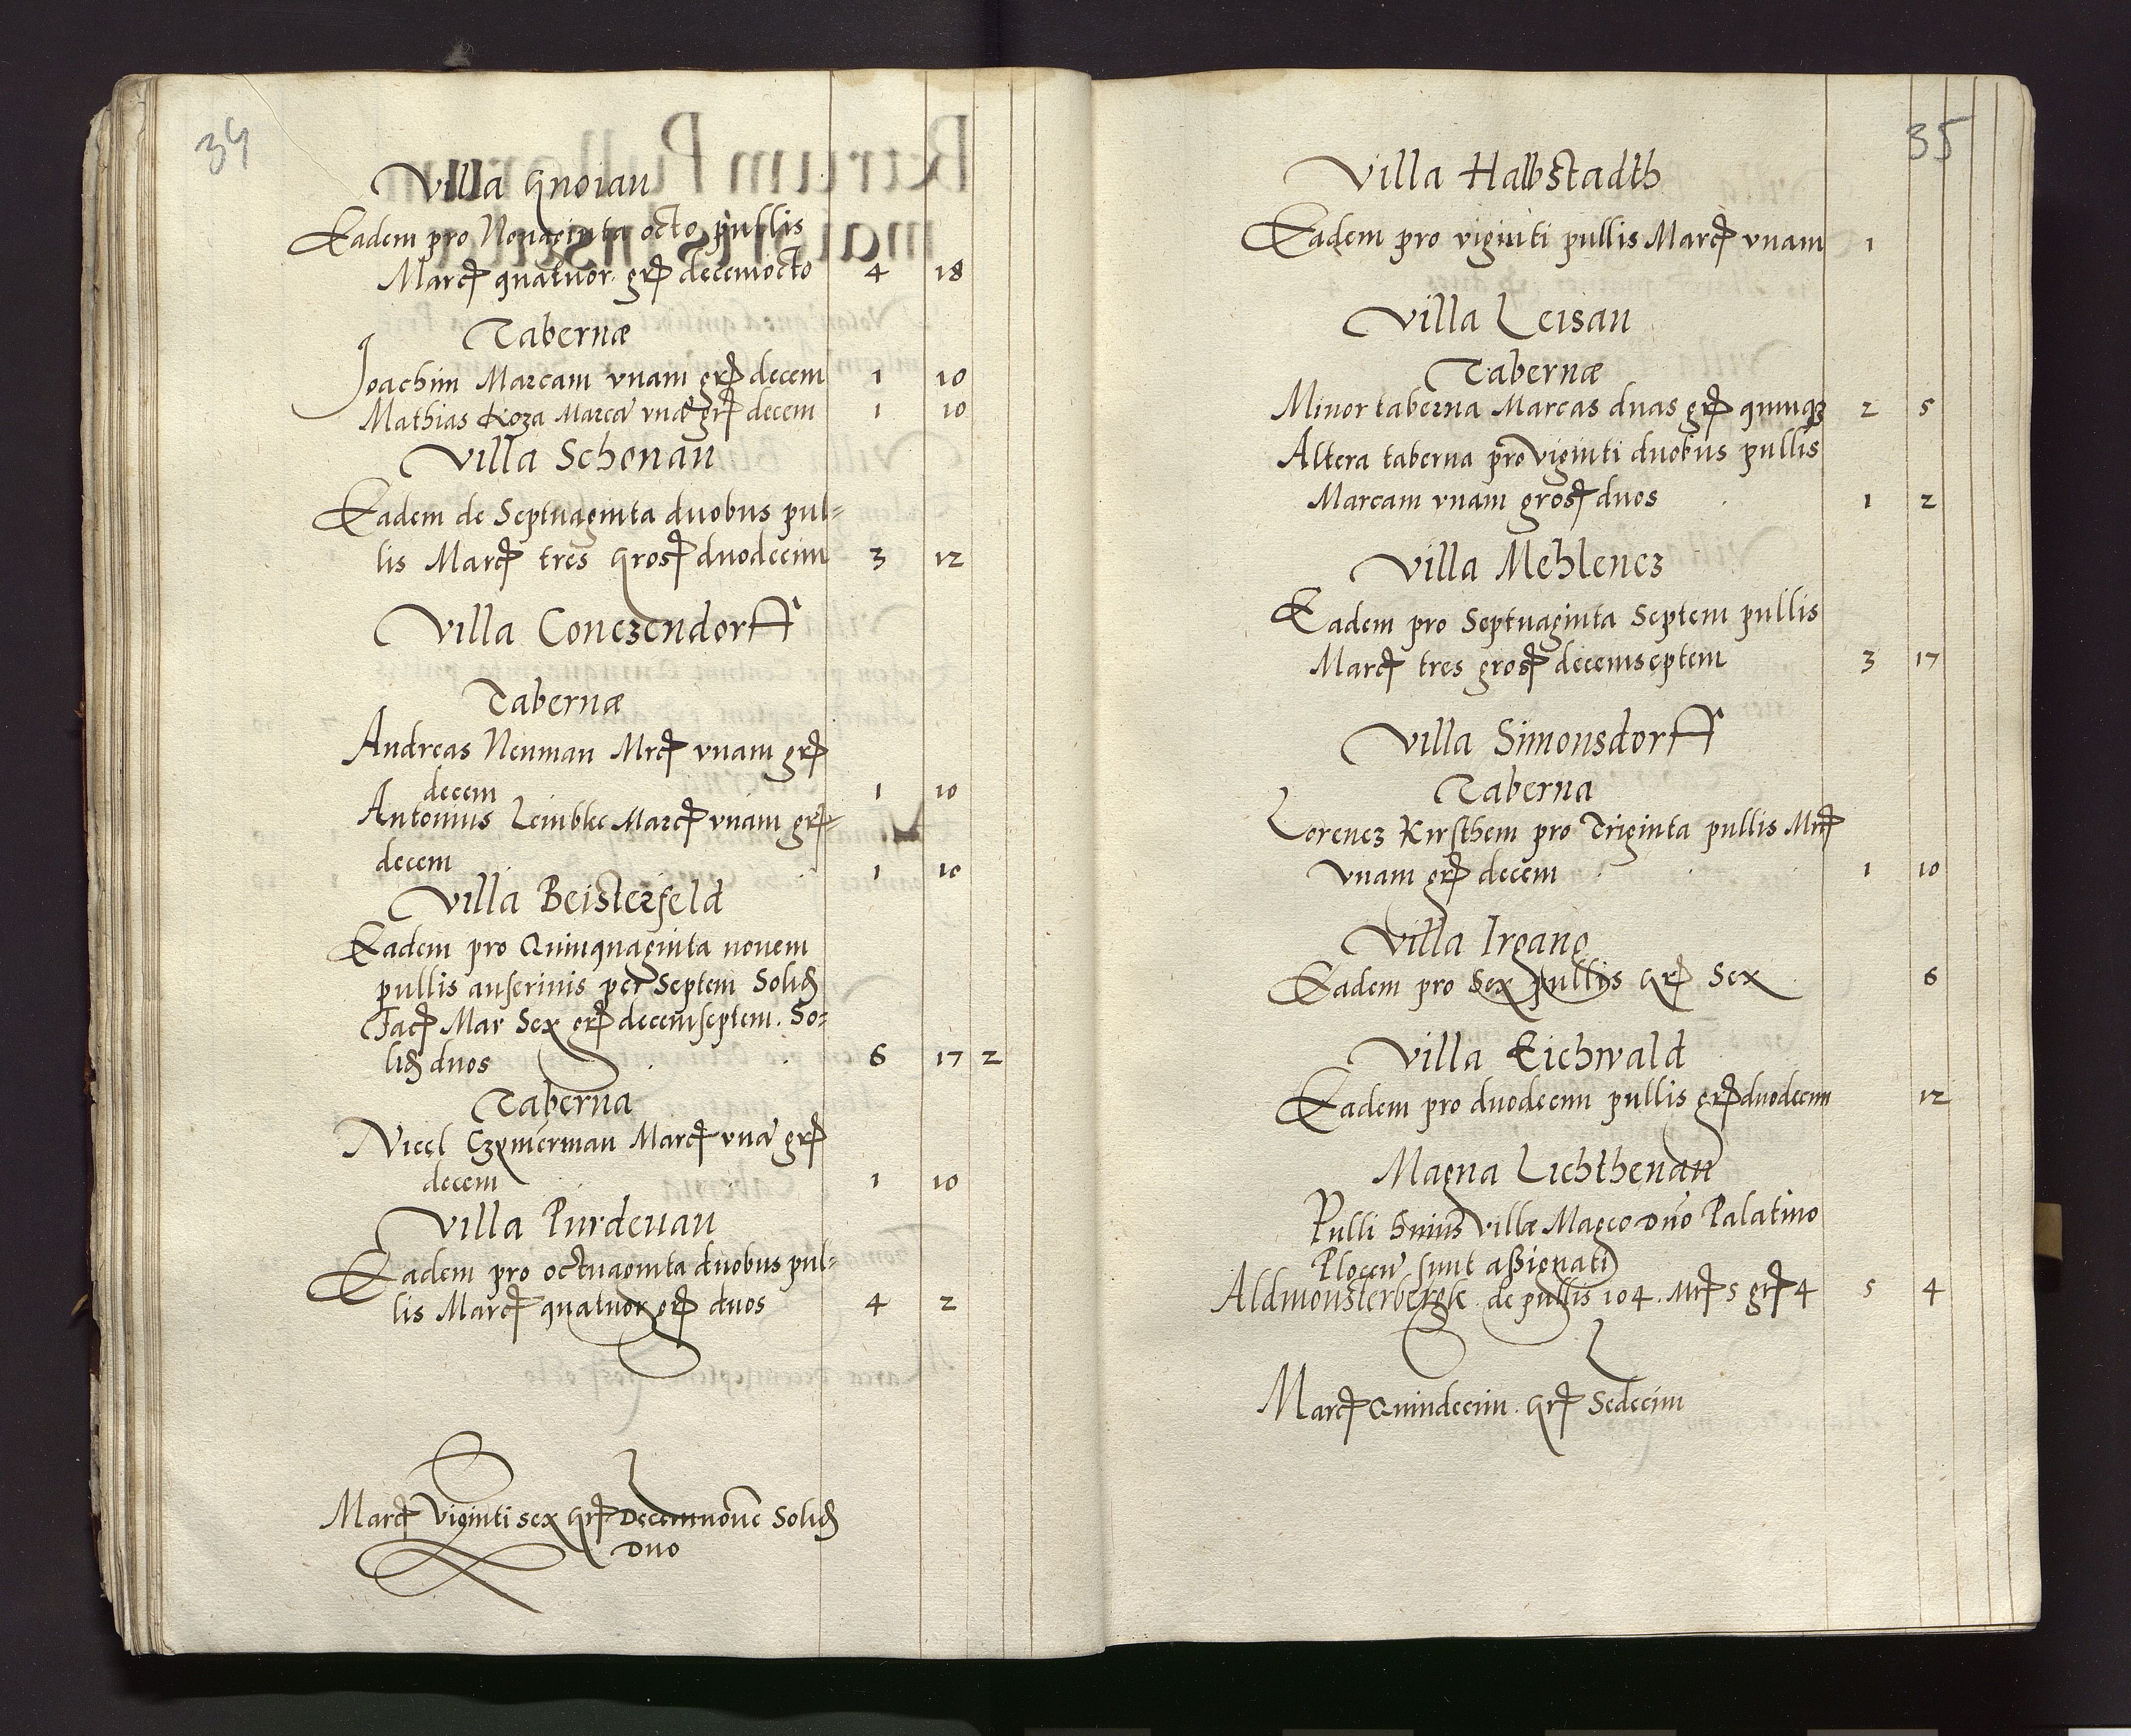 34
Villa Gnoian
Eadem pro Nonaginta octo pullis
Marcꝭ quatuor grꝭ decemocto 4 18
Tabernæ
Joachim Marcam vnam grꝭ decem 1 10
Mathias Koza Marcā vnā grꝭ decem 1 10
Villa Schonau
Eadem de Septuaginta duobus pul=
lis Marcꝭ tres Grosꝭ duodecim 3 12
Villa Conczendorff
Tabernæ
Andreas Neuman Mrcꝭ vnam grꝭ
decem 1 10
Antonius Lembke Marcꝭ vnam grꝭ
decem 1 10
Villa Beisterfeld
Eadem pro Quinquaginta nouem
pullis anserinis per Septem Solidꝭ
Facꝭ Mar Sex grꝭ decemseptem. So=
lidꝭ duos 6 17 2
Taberna
Nicel Czymerman Marcꝭ vnā grꝭ
decem 1 10
Villa Purdenau
Eadem pro octuaginta duobus pul=
lis Marcꝭ quatuor grꝭ duos 4 2
Marcꝭ Viginti sex Grꝭ Decemnouē Solidꝭ
Duo
35
Villa Halbstadth
Eadem pro viginti pullis Marcꝭ vnam 1
Villa Leisau
Tabernæ
Minor taberna Marcas duas grꝭ quinqȝ 2 5
Altera taberna pro viginti duobus pullis
Marcam vnam grosꝭ duos 1 2
Villa Mehlencz
Eadem pro Septuaginta Septem pullis
Marcꝭ tres grosꝭ decemseptem 3 17
Villa Simonsdorff
Taberna
Lorencz Kirsthem pro Triginta pullis Mrꝭ
vnam grꝭ decem 1 10
Villa Irgang
Eadem pro Sex pullis Grꝭ Sex 6
Villa Eichwald
Eadem pro duodecim pullis grꝭ duodecim 12
Magna Lichthenau
Pulli huius Villæ Magco Dño Palatino
Plocen̄ sunt assignati
Aldmonsterbergk de pullis 104. Mrꝭ 5 grꝭ 4 5 4
Marcꝭ Quindecim. Grꝭ Sedecim